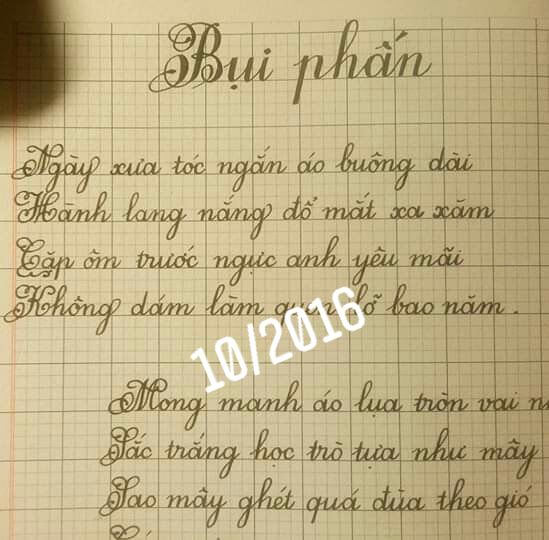 Bụi phấn
Ngày xưa tóc ngắn áo buông dài
Hành lang nắng đổ mắt xa xăm
Cặp ôm trước ngực anh yêu mãi
Không dám làm quen đã bao năm.
10/2016
Mong manh áo lụa tròn vai
Sắc trắng học trò tựa như mây
Sao mây ghét quá đùa theo gió